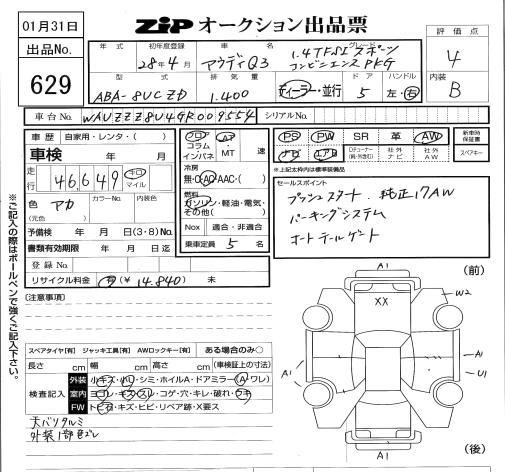 01月31日
ZIP オークション出品票
評価点
4
内装
B
出品No.
629
年式 初年度登録 車名 グレード
28年4月 アウディQ3 1.4TFSIスポーツ
コンビニエンスPKG
型式 排気量 ドア ハンドル
ABA-8UCZD 1.400 ディーラー・並行 5 左・右
車台No. WAUZZZ8U4GR009554 シリアルNo.
車歴 自家用・レンタ・( )
車検 年 月
走行 46,649 キロ マイル
色 アカ カラーNo. 内装色
(元色)
予備検 年 月 日(3・8)No.
書類有効期限 年 月 日迄
登録No.
リサイクル料金 有(¥ 14,840) 未
フロア
コラム
インパネ
AT
・
MT
速
冷房
無・C・AAC・( )
燃料
ガソリン・軽油・電気・
その他( )
Nox 適合・非適合
乗車定員 5 名
PS PW SR 革 AW
ナビ エアB DFチューナー 社外ナビ 社外AW
新車時保証書
スペアキー
※上記太枠内は標準装備品
セールスポイント
プッシュスタート 純正17AW
パーキングシステム
オートテールゲート
※ご記入の際はボールペンで強くご記入下さい。
(注意事項)
スペアタイヤ[有] ジャッキ工具[有] AWロックキー[有] ある場合のみ○
長さ cm 幅 cm 高さ cm (車検証上の寸法)
検査記入
外装 小キズ・小U・シミ・ホイルA・ドアミラー(A・ワレ)
室内 ヨゴレ・キズ・スレ・コゲ・穴・キレ・破れ・ウキ
FW トビ石・キズ・ヒビ・リペア跡・X要ス
天バリタルミ
外装1部色ズレ
(前)
A1
XX
W2
A1
A1
U1
A1
(後)